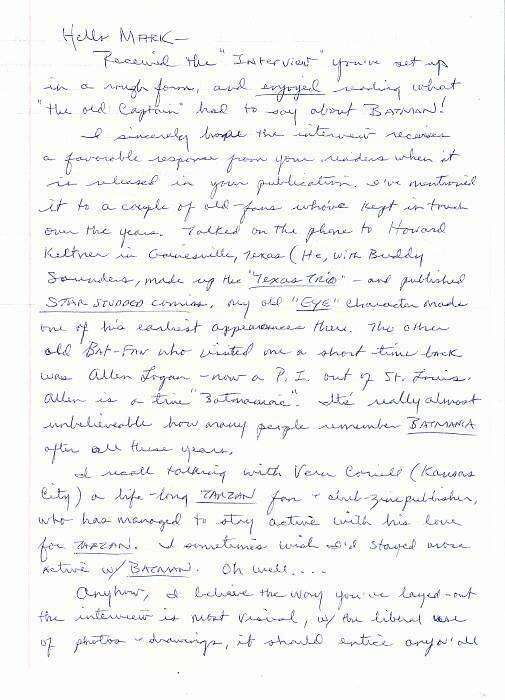 Hello MARK—
Received the "Interview" you've set up
in a rough form, and enjoyed reading what
"the old Captain" had to say about BATMAN!
I sincerely hope the interview receives
a favorable response from your readers when it
is released in your publication. I've mentioned
it to a couple of old-fans who've kept in touch
over the years. Talked on the phone to Howard
Keltner in Gainesville, Texas (He, with Buddy
Saunders, made up the "Texas Trio" - and published
STAR STUDDED comics. My old "EYE" character made
one of his earliest appearances there. The other
old BAT-FAN who visited me a short time back
was Allen Logan - now a P.I. out of St. Louis.
Allen is a true "Batmaniac". It's really almost
unbelieveable how many people remember BATMANIA
after all these years.
I recall talking with Vern Coriell (Kansas
City) a life-long TARZAN fan + club-zine publisher,
who has managed to stay active with his love
for TARZAN. I sometimes wish I'd stayed more
active w/ BATMAN. Oh well....
Anyhow, I believe the way you've layed-out
the interview is most visual, w/ the liberal use
of photos + drawings, it should entice any n' all